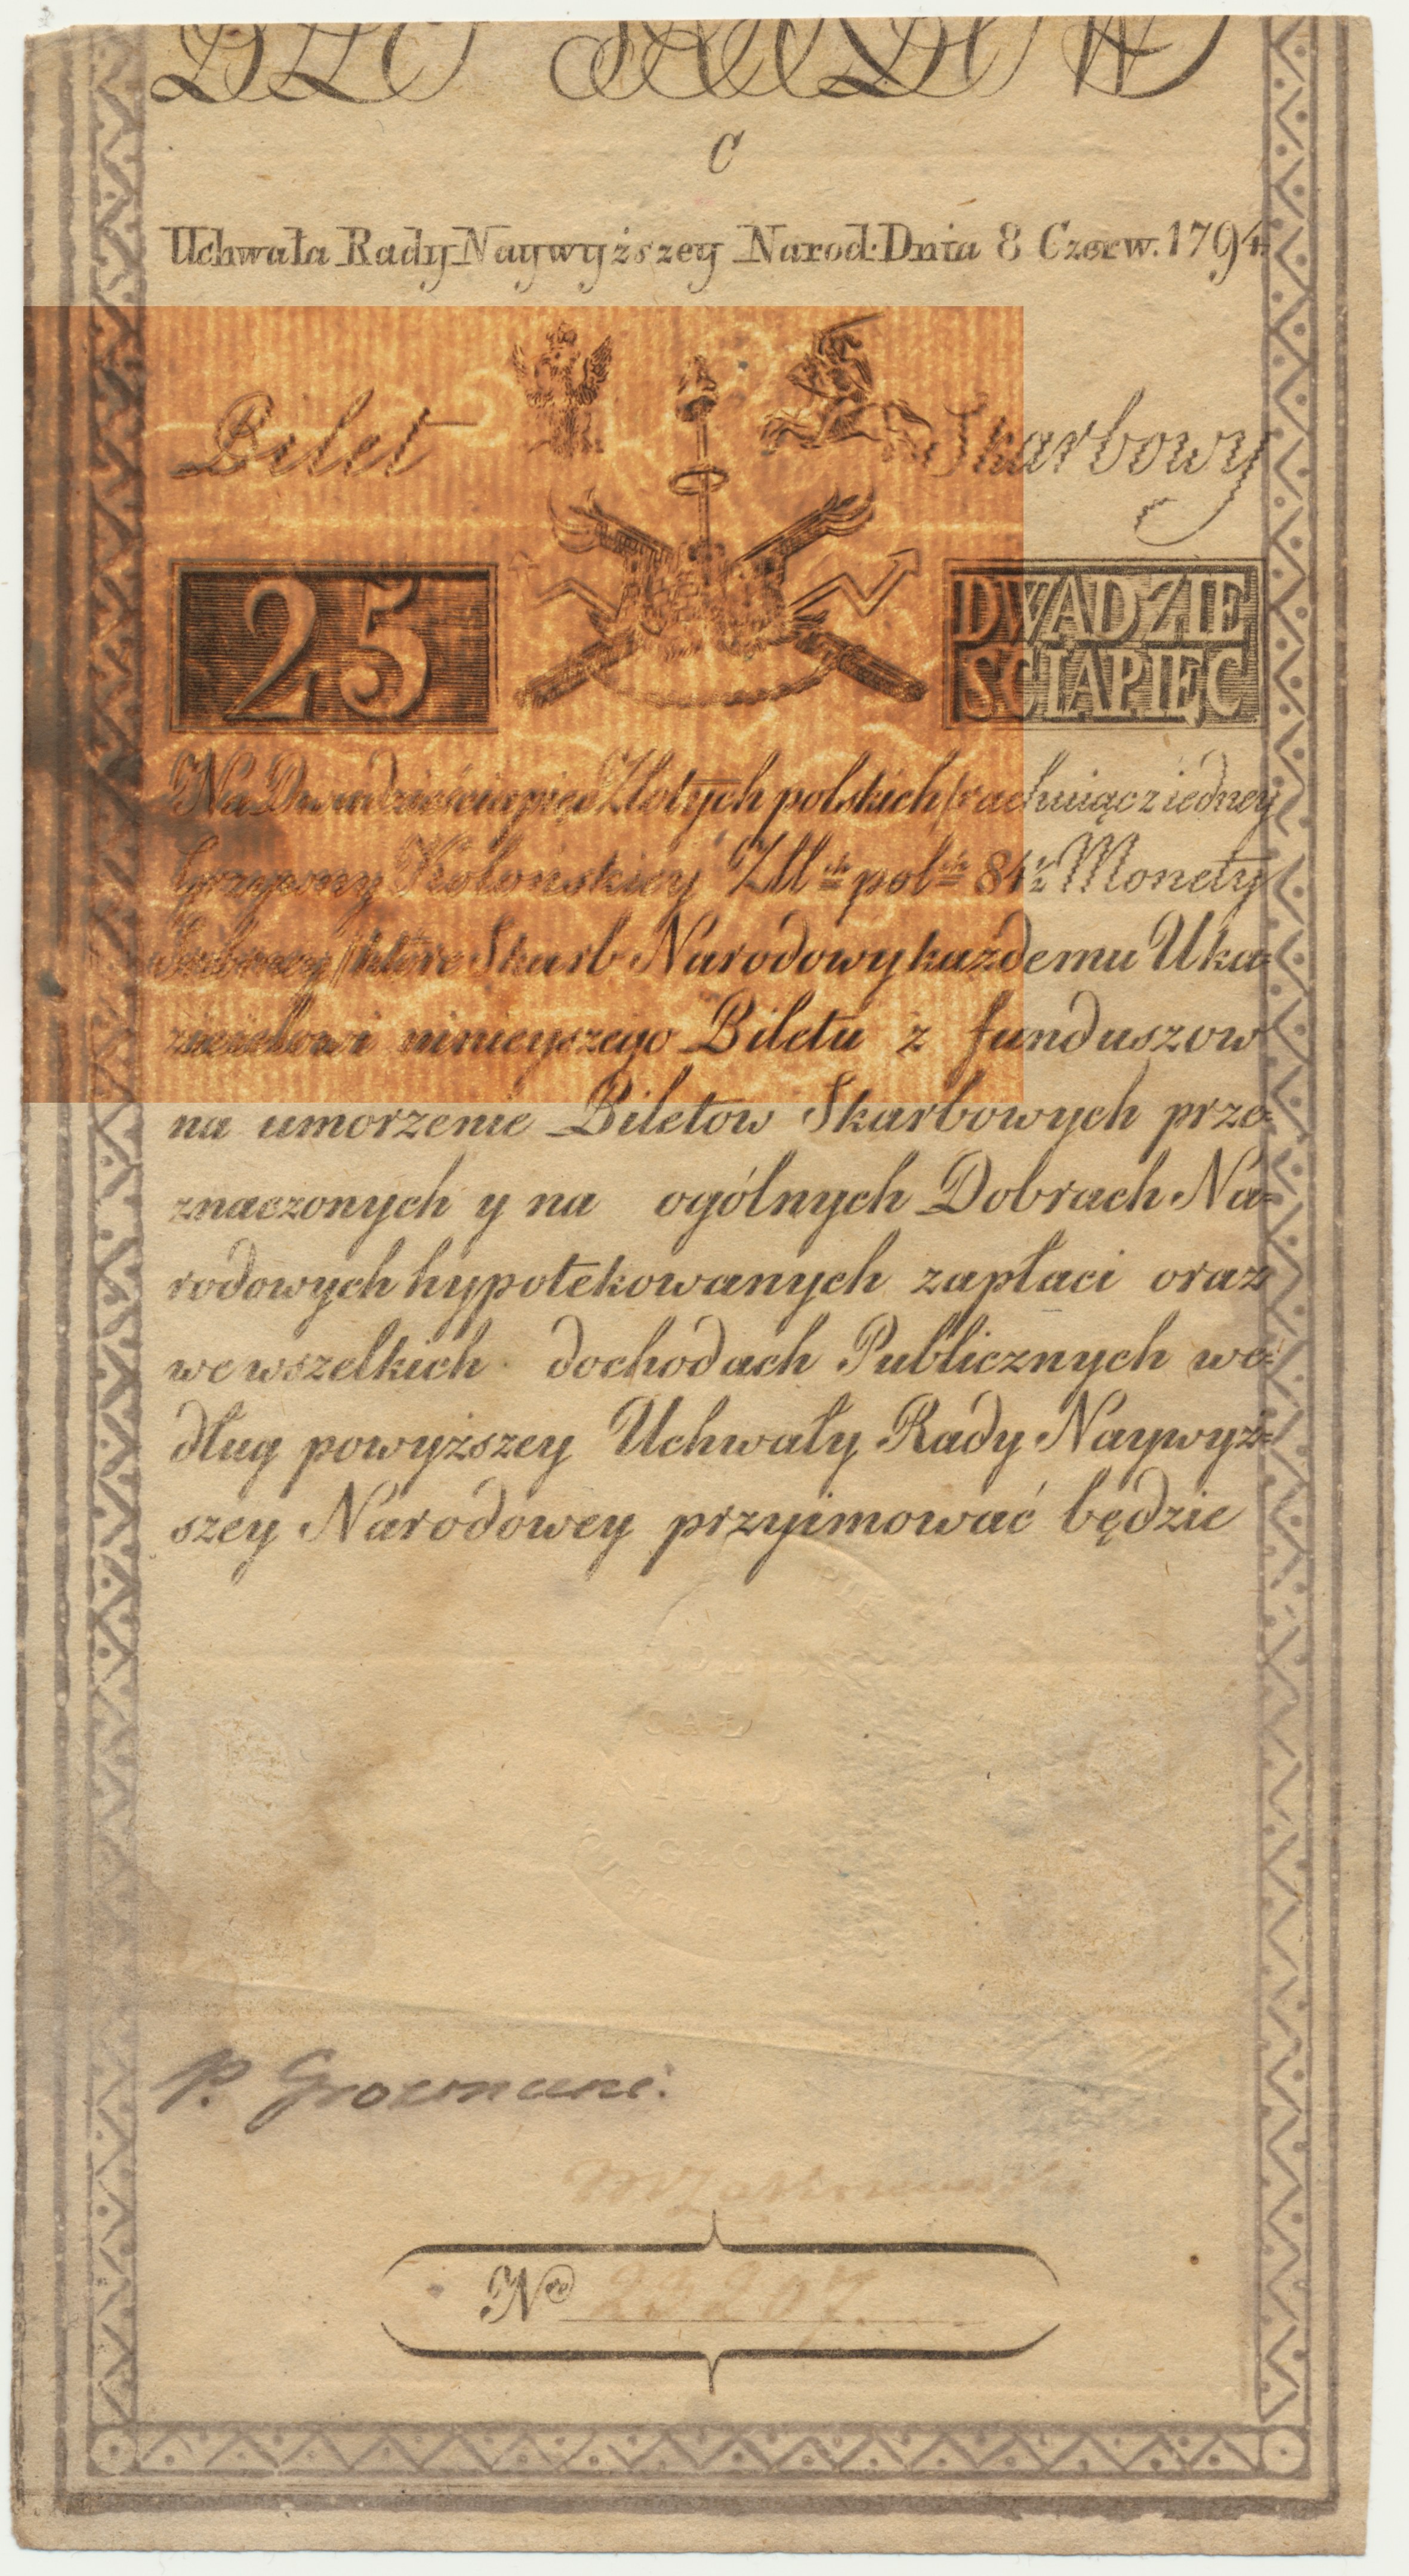 C
Uchwała Rady Naywyższey Narod: Dnia 8 Czerw. 1794.
Bilet Skarbowy
25
DWADZIE
ŚCIAPIĘC
Na Dwadzieściapięć Złotych polskich (rachuiąc z iedney
Grzywny Kolońskiey Złł. pol. 84½ Monety
Srebrney) które Skarb Narodowy każdemu Uka=
zicielowi ninieyszego Biletu z funduszow
na umorzenie Biletow Skarbowych prze=
znaczonych y na ogólnych Dobrach Na=
rodowych hypotekowanych zapłaci oraz
we wszelkich dochodach Publicznych we=
dług powyższey Uchwały Rady Naywyż=
szey Narodowey przyimować będzie
CAŁ
P. Grozmani.
MZakrzewski
Nro 23207.